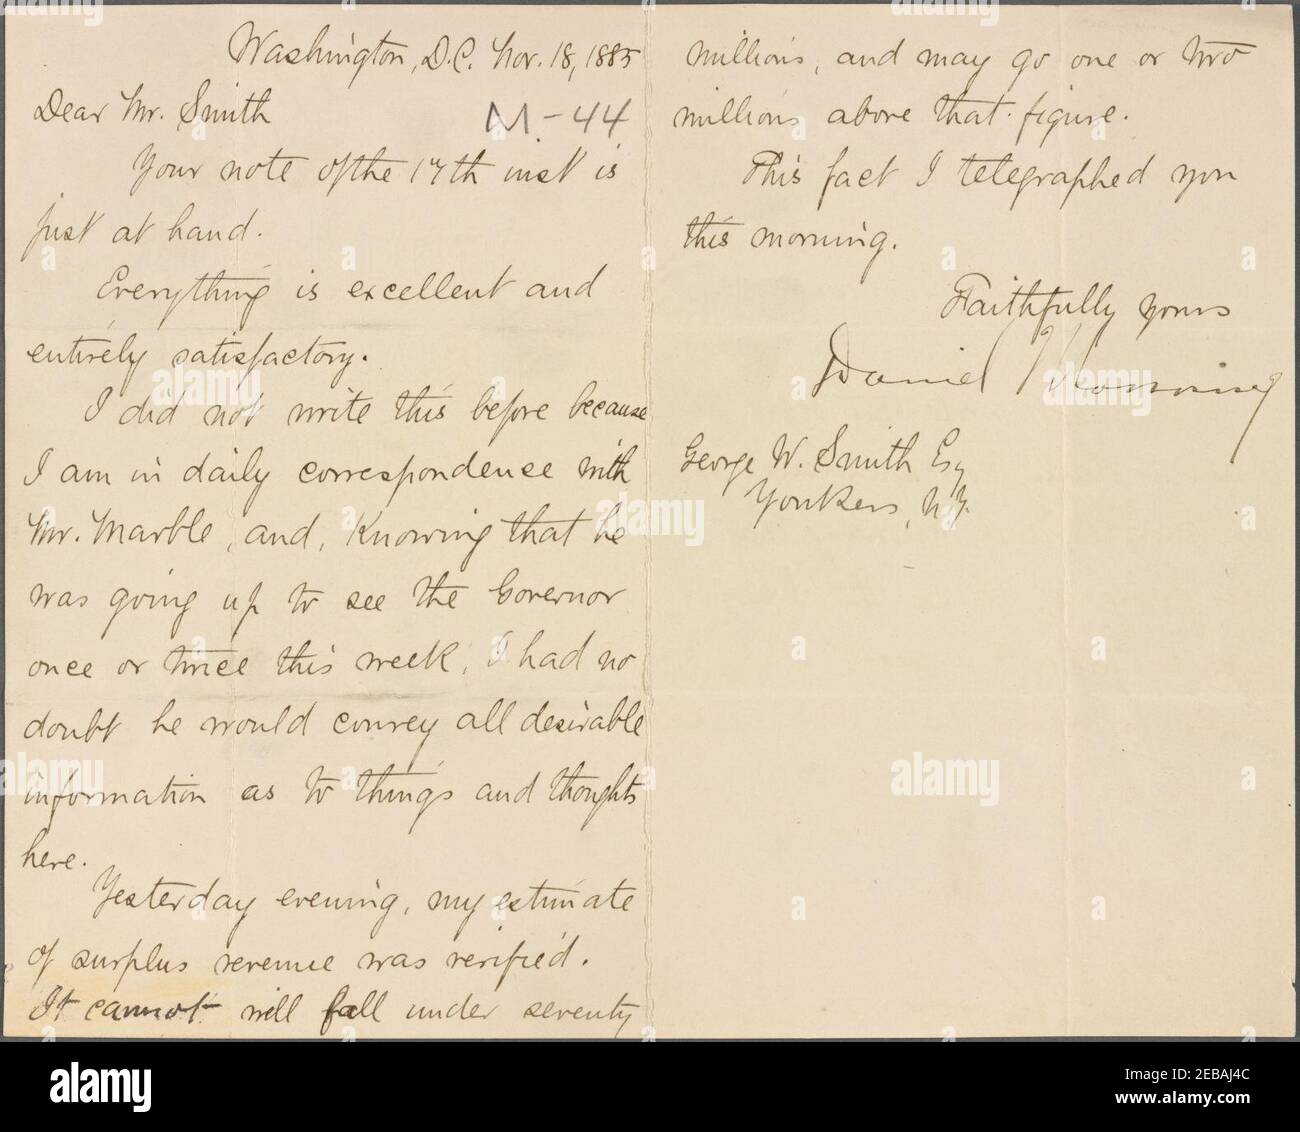 Washington, D.C. Nov. 18, 1885
Dear Mr. Smith
M-44
Your note of the 17th inst is
just at hand.
Everything is excellent and
entirely satisfactory.
I did not write this before because
I am in daily correspondence with
Mr. Marble, and, knowing that he
was going up to see the Governor
once or twice this week, I had no
doubt he would convey all desirable
information as to things and thoughts
here.
Yesterday evening, my estimate
of surplus revenue was verified.
It cannot will fall under seventy
millions, and may go one or two
millions above that figure.
This fact I telegraphed you
this morning.
Faithfully yours
Daniel
George W. Smith Esq
Yonkers, N.Y.
alamy
Image ID: 2EBAJ4C
www.alamy.com